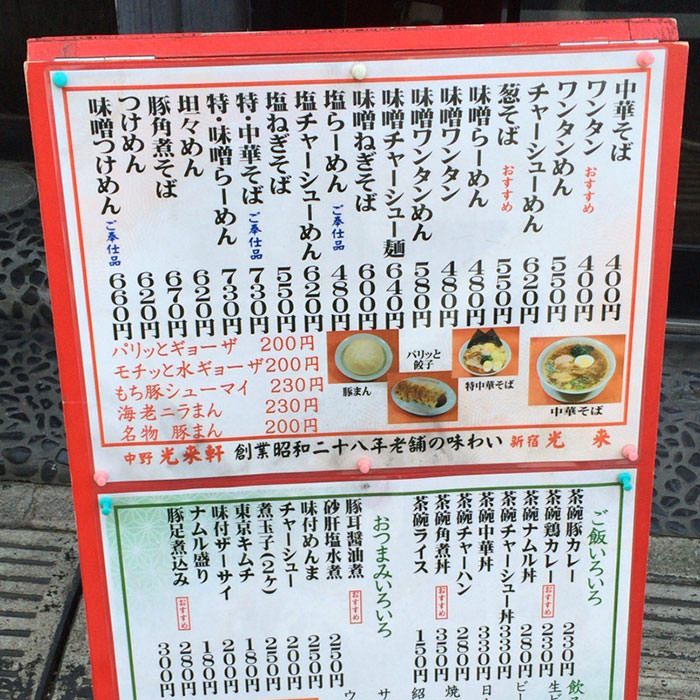 中華そば 400円
ワンタン おすすめ 400円
ワンタンめん 550円
チャーシューめん 620円
葱そば おすすめ 550円
味噌らーめん 480円
味噌ワンタン 480円
味噌ワンタンめん 580円
味噌チャーシュー麺 640円
味噌ねぎそば 600円
塩らーめん ご奉仕品 480円
塩チャーシューめん 620円
塩ねぎそば 550円
特・中華そば ご奉仕品 730円
特・味噌らーめん 730円
坦々めん 620円
豚角煮そば 670円
つけめん 620円
味噌つけめん ご奉仕品 660円
パリッとギョーザ 200円
モチッと水ギョーザ 200円
もち豚シューマイ 230円
海老ニラまん 230円
名物 豚まん 200円
豚まん
パリッと
餃子
特中華そば
中華そば
中野 光来軒 創業昭和二十八年老舗の味わい 新宿 光来
ご飯いろいろ
茶碗豚カレー 230円
茶碗鶏カレー 230円
茶碗ナムル丼 おすすめ 280円
茶碗チャーシュー丼 330円
茶碗中華丼 330円
茶碗チャーハン 280円
茶碗角煮丼 おすすめ 350円
茶碗ライス 150円
おつまみいろいろ
豚耳醤油煮 おすすめ 250円
砂肝塩水煮 250円
味付めんま 200円
チャーシュー 250円
煮玉子(2ヶ) 180円
東京キムチ 200円
味付ザーサイ 180円
ナムル盛り 280円
豚足煮込み おすすめ 300円
飲
生ビ
ビー
焼
紹
サ
ウ